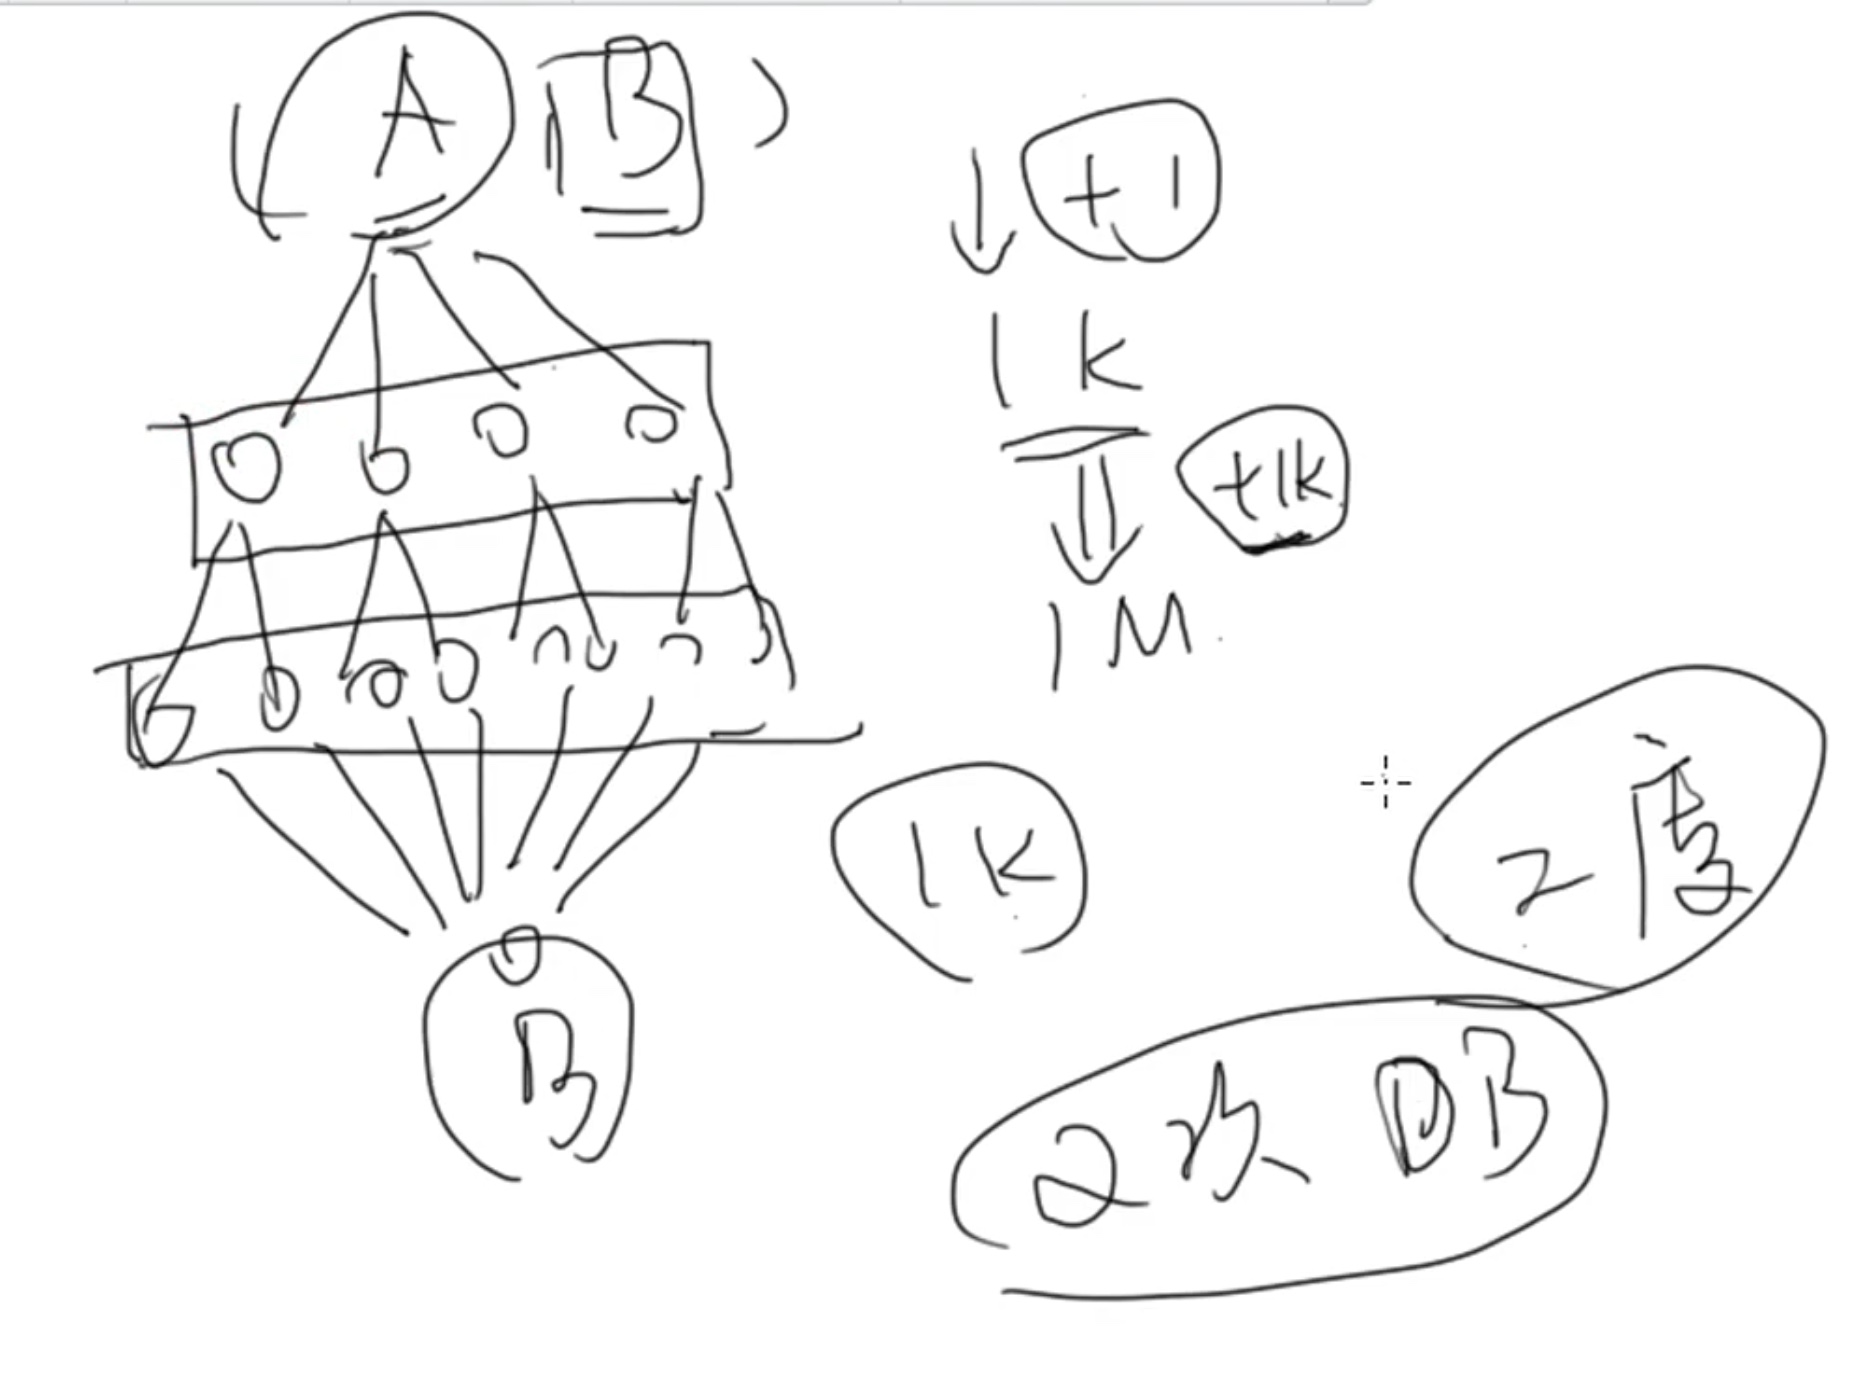 ( A B )
+1
1K
+1K
1M
1K
2度
2次 DB
B